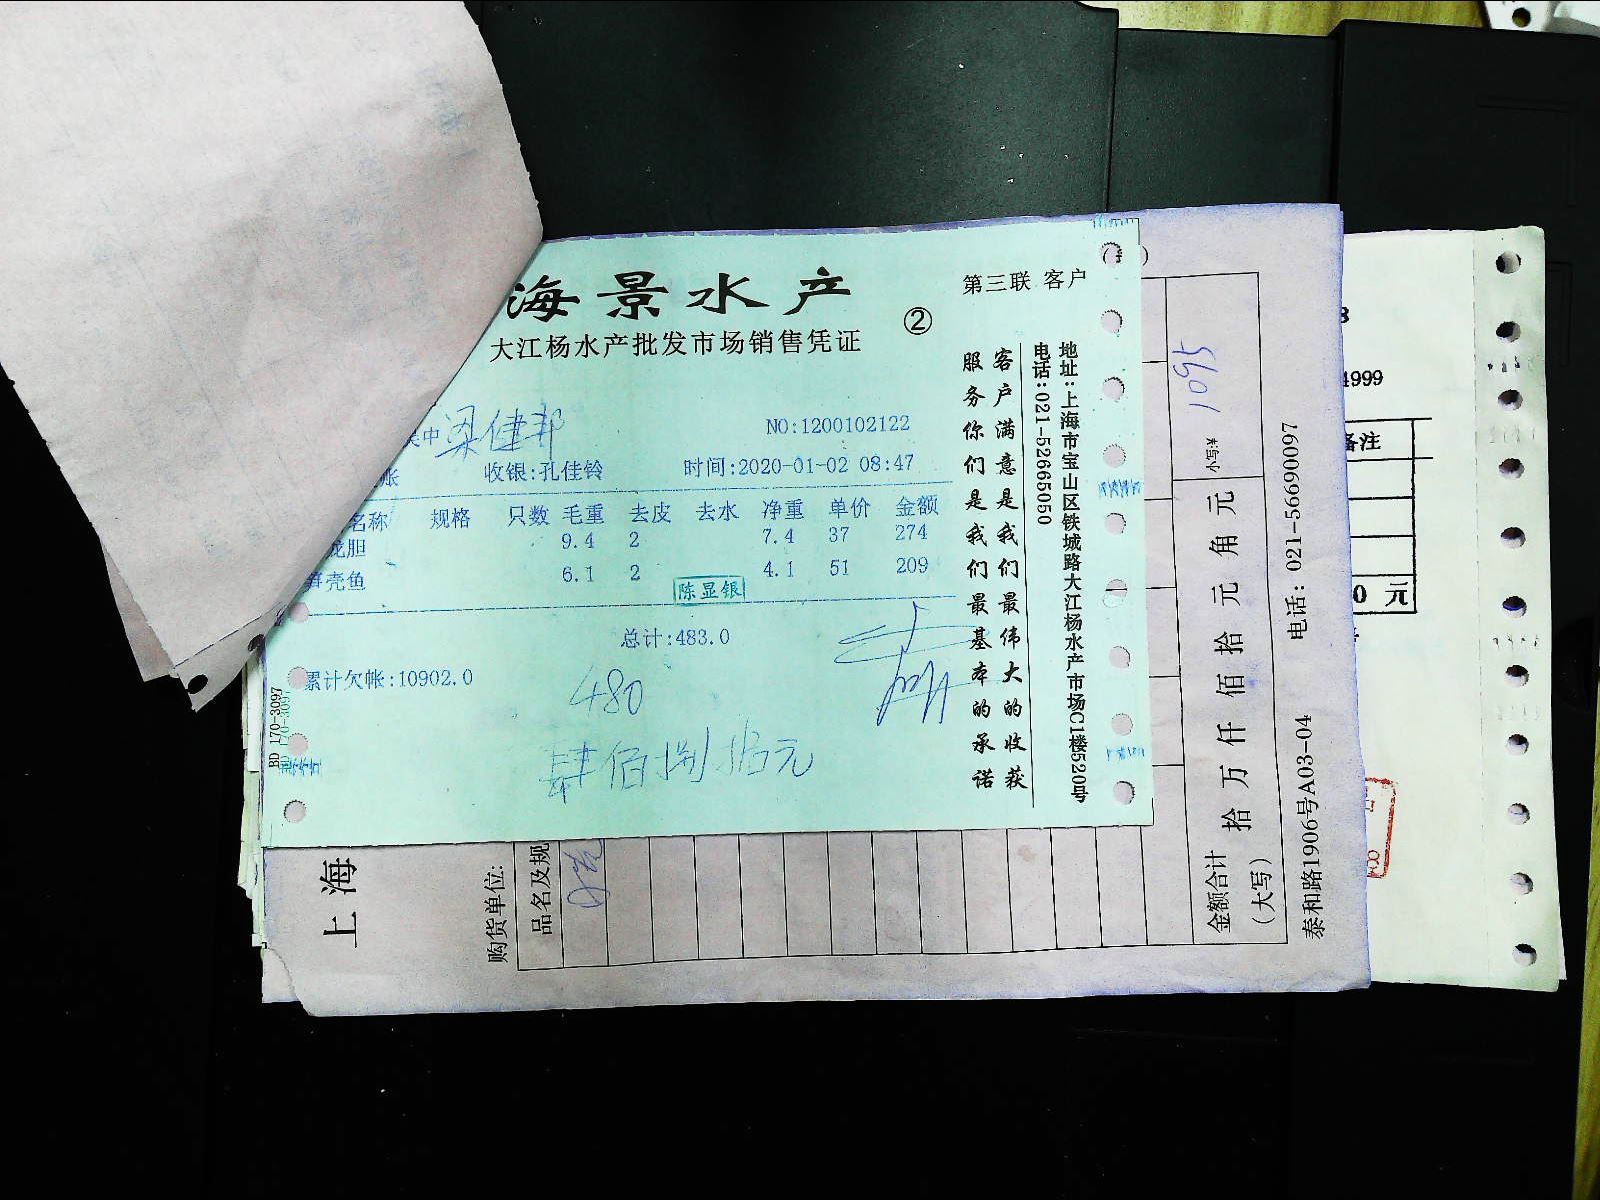 海景水产
大江杨水产批发市场销售凭证
②
第三联 客户
中 梁健邦
NO:1200102122
帐
收银:孔佳铃
时间:2020-01-02 08:47
名称 规格 只数 毛重 去皮 去水 净重 单价 金额
龙胆 9.4 2 7.4 37 274
笋壳鱼 6.1 2 4.1 51 209
陈显银
总计:483.0
累计欠帐:10902.0
480
肆佰捌拾元
客户满意是我们最伟大的收获
服务你们是我们最基本的承诺
地址:上海市宝山区铁城路大江杨水产市场C1楼520号
电话:021-52665050
BD 170-3097
上海
购货单位:
品名及规
1095
小写:¥
金额合计
(大写)
拾 万 仟 佰 拾 元 角 元
泰和路1906号A03-04
电话: 021-56690097
4999
备注
0 元